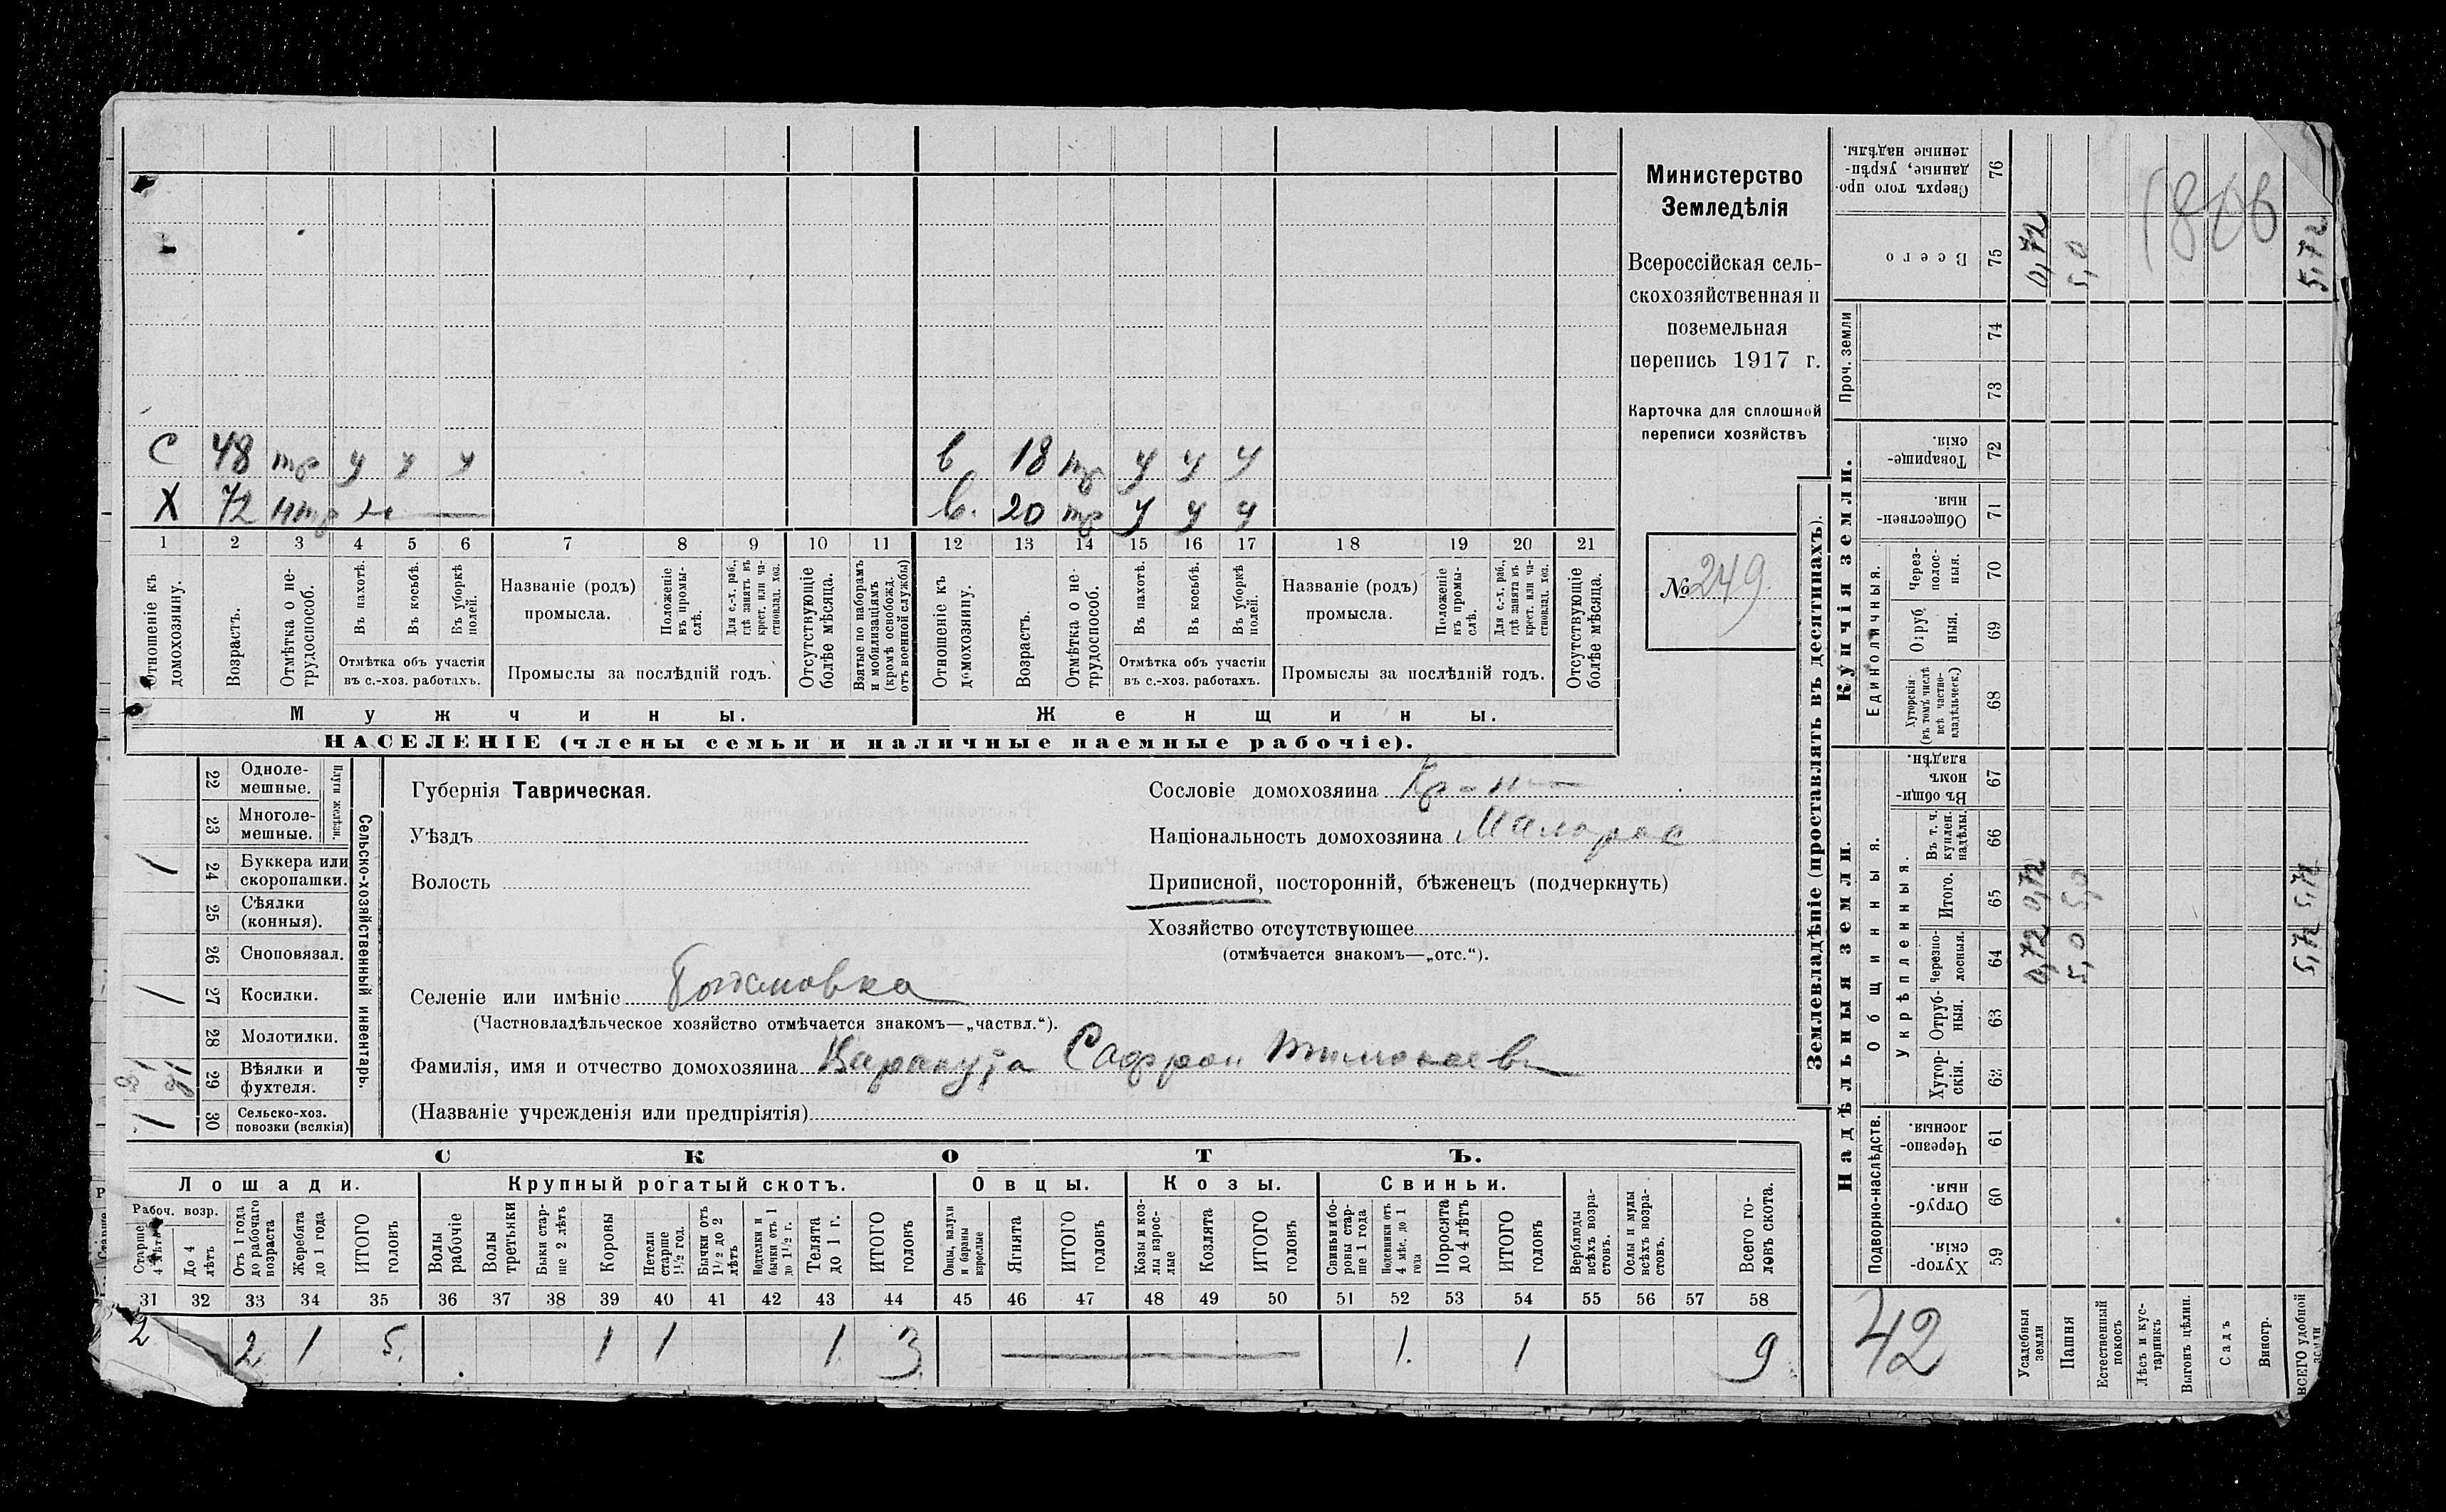 С 48 тр у у у
Х 72 нтр н —
в 18 тр у у у
в. 20 тр у у у
1 2 3 4 5 6 7 8 9 10 11 12 13 14 15 16 17 18 19 20 21
Отношеніе къ домохозяину.
Возрастъ.
Отмѣтка о нетрудоспособ.
Въ пахотѣ.
Въ косьбѣ.
Въ уборкѣ полей.
Отмѣтка объ участіи
въ с.-хоз. работахъ.
Названіе (родъ)
промысла.
Положеніе въ промыслѣ.
Для с.-х. раб., гдѣ занятъ въ крест. или частновлад. хоз.
Промыслы за послѣдній годъ.
Отсутствующіе болѣе мѣсяца.
Взятые по наборамъ и мобилизаціямъ (кромѣ освобожд. отъ военной службы)
Отношеніе къ домохозяину.
Возрастъ.
Отмѣтка о нетрудоспособ.
Въ пахотѣ.
Въ косьбѣ.
Въ уборкѣ полей.
Отмѣтка объ участіи
въ с.-хоз. работахъ.
Названіе (родъ)
промысла.
Положеніе въ промыслѣ.
Для с.-х. раб., гдѣ занятъ въ крест. или частновлад. хоз.
Промыслы за послѣдній годъ.
Отсутствующіе болѣе мѣсяца.
Мужчины.
Женщины.
НАСЕЛЕНІЕ (члены семьи и наличные наемные рабочіе).
Министерство
Земледѣлія
Всероссійская сель-
скохозяйственная и
поземельная
перепись 1917 г.
Карточка для сплошной
переписи хозяйствъ
№ 249.
22 Одноле-
мешные.
23 Многоле-
мешные.
Плуги желѣзн.
1 24 Буккера или
скоропашки.
25 Сѣялки
(конныя).
26 Сноповязал.
1 27 Косилки.
28 Молотилки.
29 Вѣялки и
фухтеля.
1 30 Сельско-хоз.
повозки (всякія)
Сельско-хозяйственный инвентарь
Губернія Таврическая.
Уѣздъ
Волость
Сословіе домохозяина Кр-н
Національность домохозяина Малорос
Приписной, посторонній, бѣженецъ (подчеркнуть)
Хозяйство отсутствующее
(отмѣчается знакомъ—„отс.“).
Селеніе или имѣніе Богдановка
(Частновладѣльческое хозяйство отмѣчается знакомъ—„частвл.“).
Фамилія, имя и отчество домохозяина Сафрон
(Названіе учрежденія или предпріятія)
СКОТЪ.
Лошади. Крупный рогатый скотъ. Овцы. Козы. Свиньи.
Рабоч. возр.
Старше 4 лѣтъ
До 4 лѣтъ
Отъ 1 года до рабочаго возраста
Жеребята до 1 года
ИТОГО головъ
Волы рабочіе
Волы третьяки
Быки старше 2 лѣтъ
Коровы
Нетели старше 1½ год.
Бычки отъ 1½ до 2 лѣтъ
Подтелки и бычки отъ 1 до 1½ г.
Телята до 1 г.
ИТОГО головъ
Овцы, валухи и бараны взрослые
Ягнята
ИТОГО головъ
Козы и козлы взрослые
Козлята
ИТОГО головъ
Свиньи и боровы старше 1 года
Подсвинки отъ 4 мѣс. до 1 года
Поросята до 4 лѣтъ
ИТОГО головъ
Верблюды всѣхъ возрастовъ.
Ослы и мулы всѣхъ возрастовъ.
Всего головъ скота.
31 32 33 34 35 36 37 38 39 40 41 42 43 44 45 46 47 48 49 50 51 52 53 54 55 56 57 58
2 2 1 5. 1 1 1 3 1. 1 9
Землевладѣніе (проставлять въ десятинахъ).
Надѣльныя земли.
Купчія земли.
Проч. земли
Подворно-наслѣдств.
Общинныя.
Укрѣпленныя.
Единоличныя.
Сверхъ того проданные, укрѣпленные надѣлы. 76
Всего 75 0,72 5,0 5,72
74
73
Товарищескія. 72
Общественныя. 71
Черезполосныя. 70
Отрубныя. 69
Хуторскія (въ томъ числѣ всѣ частновладѣльческ.) 68
Въ общинномъ владѣн. 67
Въ т. ч. куплен. надѣлы. 66
Итого. 65 0,72 5,0 5,72
Черезполосныя. 64 0,72 5,0 5,72
Отрубныя. 63
Хуторскія. 62
Черезполосныя. 61
Отрубныя. 60
Хуторскія. 59
42
Усадебныя земли
Пашня
Естественный покосъ
Лѣсъ и кустарникъ
Выгонъ цѣлин.
Садъ
Виногр.
ВСЕГО удобной земли